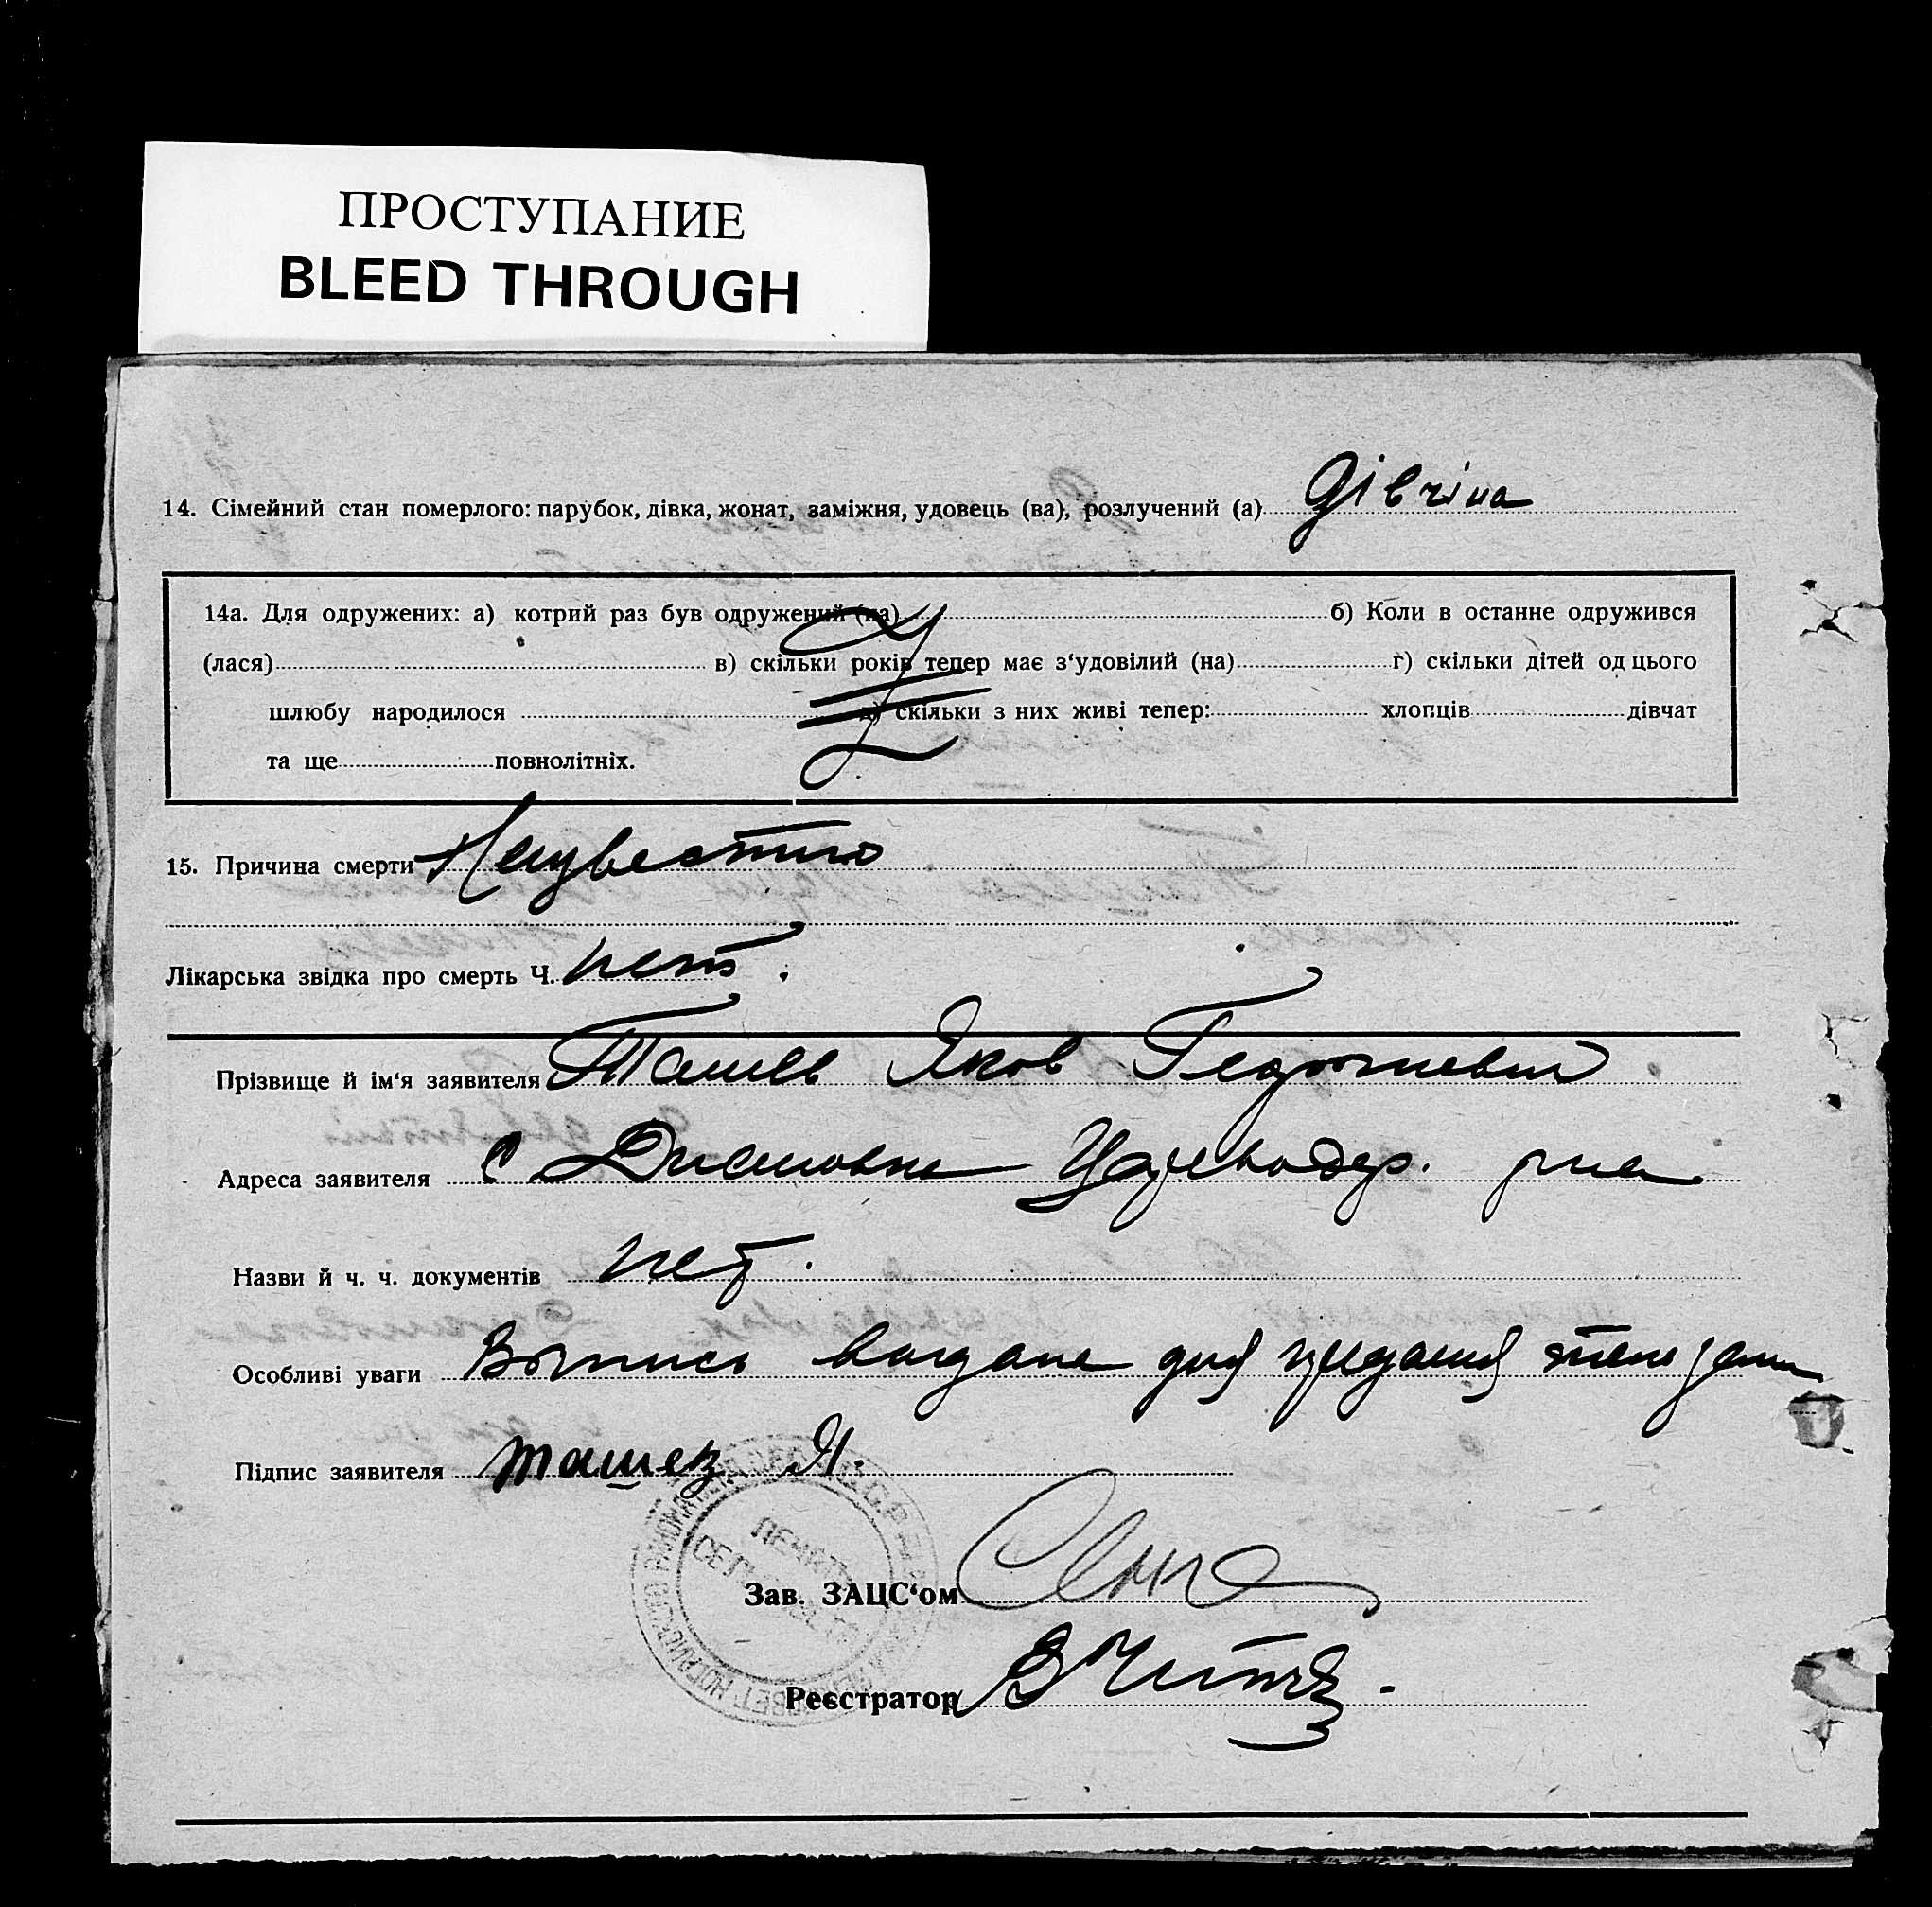 ПРОСТУПАНИЕ
BLEED THROUGH
14. Сімейний стан померлого: парубок, дівка, жонат, заміжня, удовець (ва), розлучений (а) Дівчіна
14а. Для одружених: а) котрий раз був одружений (на) б) Коли в останне одружився
(лася) в) скільки років тепер має з‘удовілий (на) г) скільки дітей од цього
шлюбу народилося д) скільки з них живі тепер: хлопців дівчат
та ще повнолітніх.
15. Причина смерти Неизвестно
Лікарська звідка про смерть Ч. нет.
Прізвище й ім‘я заявителя Ташев Яков Георгиевич
Адреса заявителя с Диановка Цареводар. р-на
Назви й ч. ч. документів нет.
Особливі уваги Выпись выдана для
Підпис заявителя Ташев Я.
Зав. ЗАЦС‘ом
Реєстратор